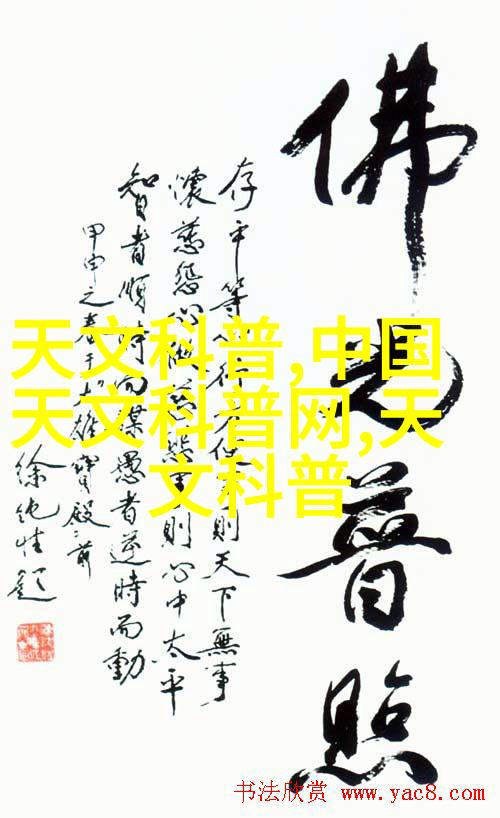 佛光普照
存平等心行方便事則天下無事
懷慈悲心做慈悲事則心中太平
智者順時而謀愚者逆時而動
甲申之春于大雄寶殿前
徐純性題
天文科普,中国
天文科普网,天
文科普
书法欣赏 www.yac8.com